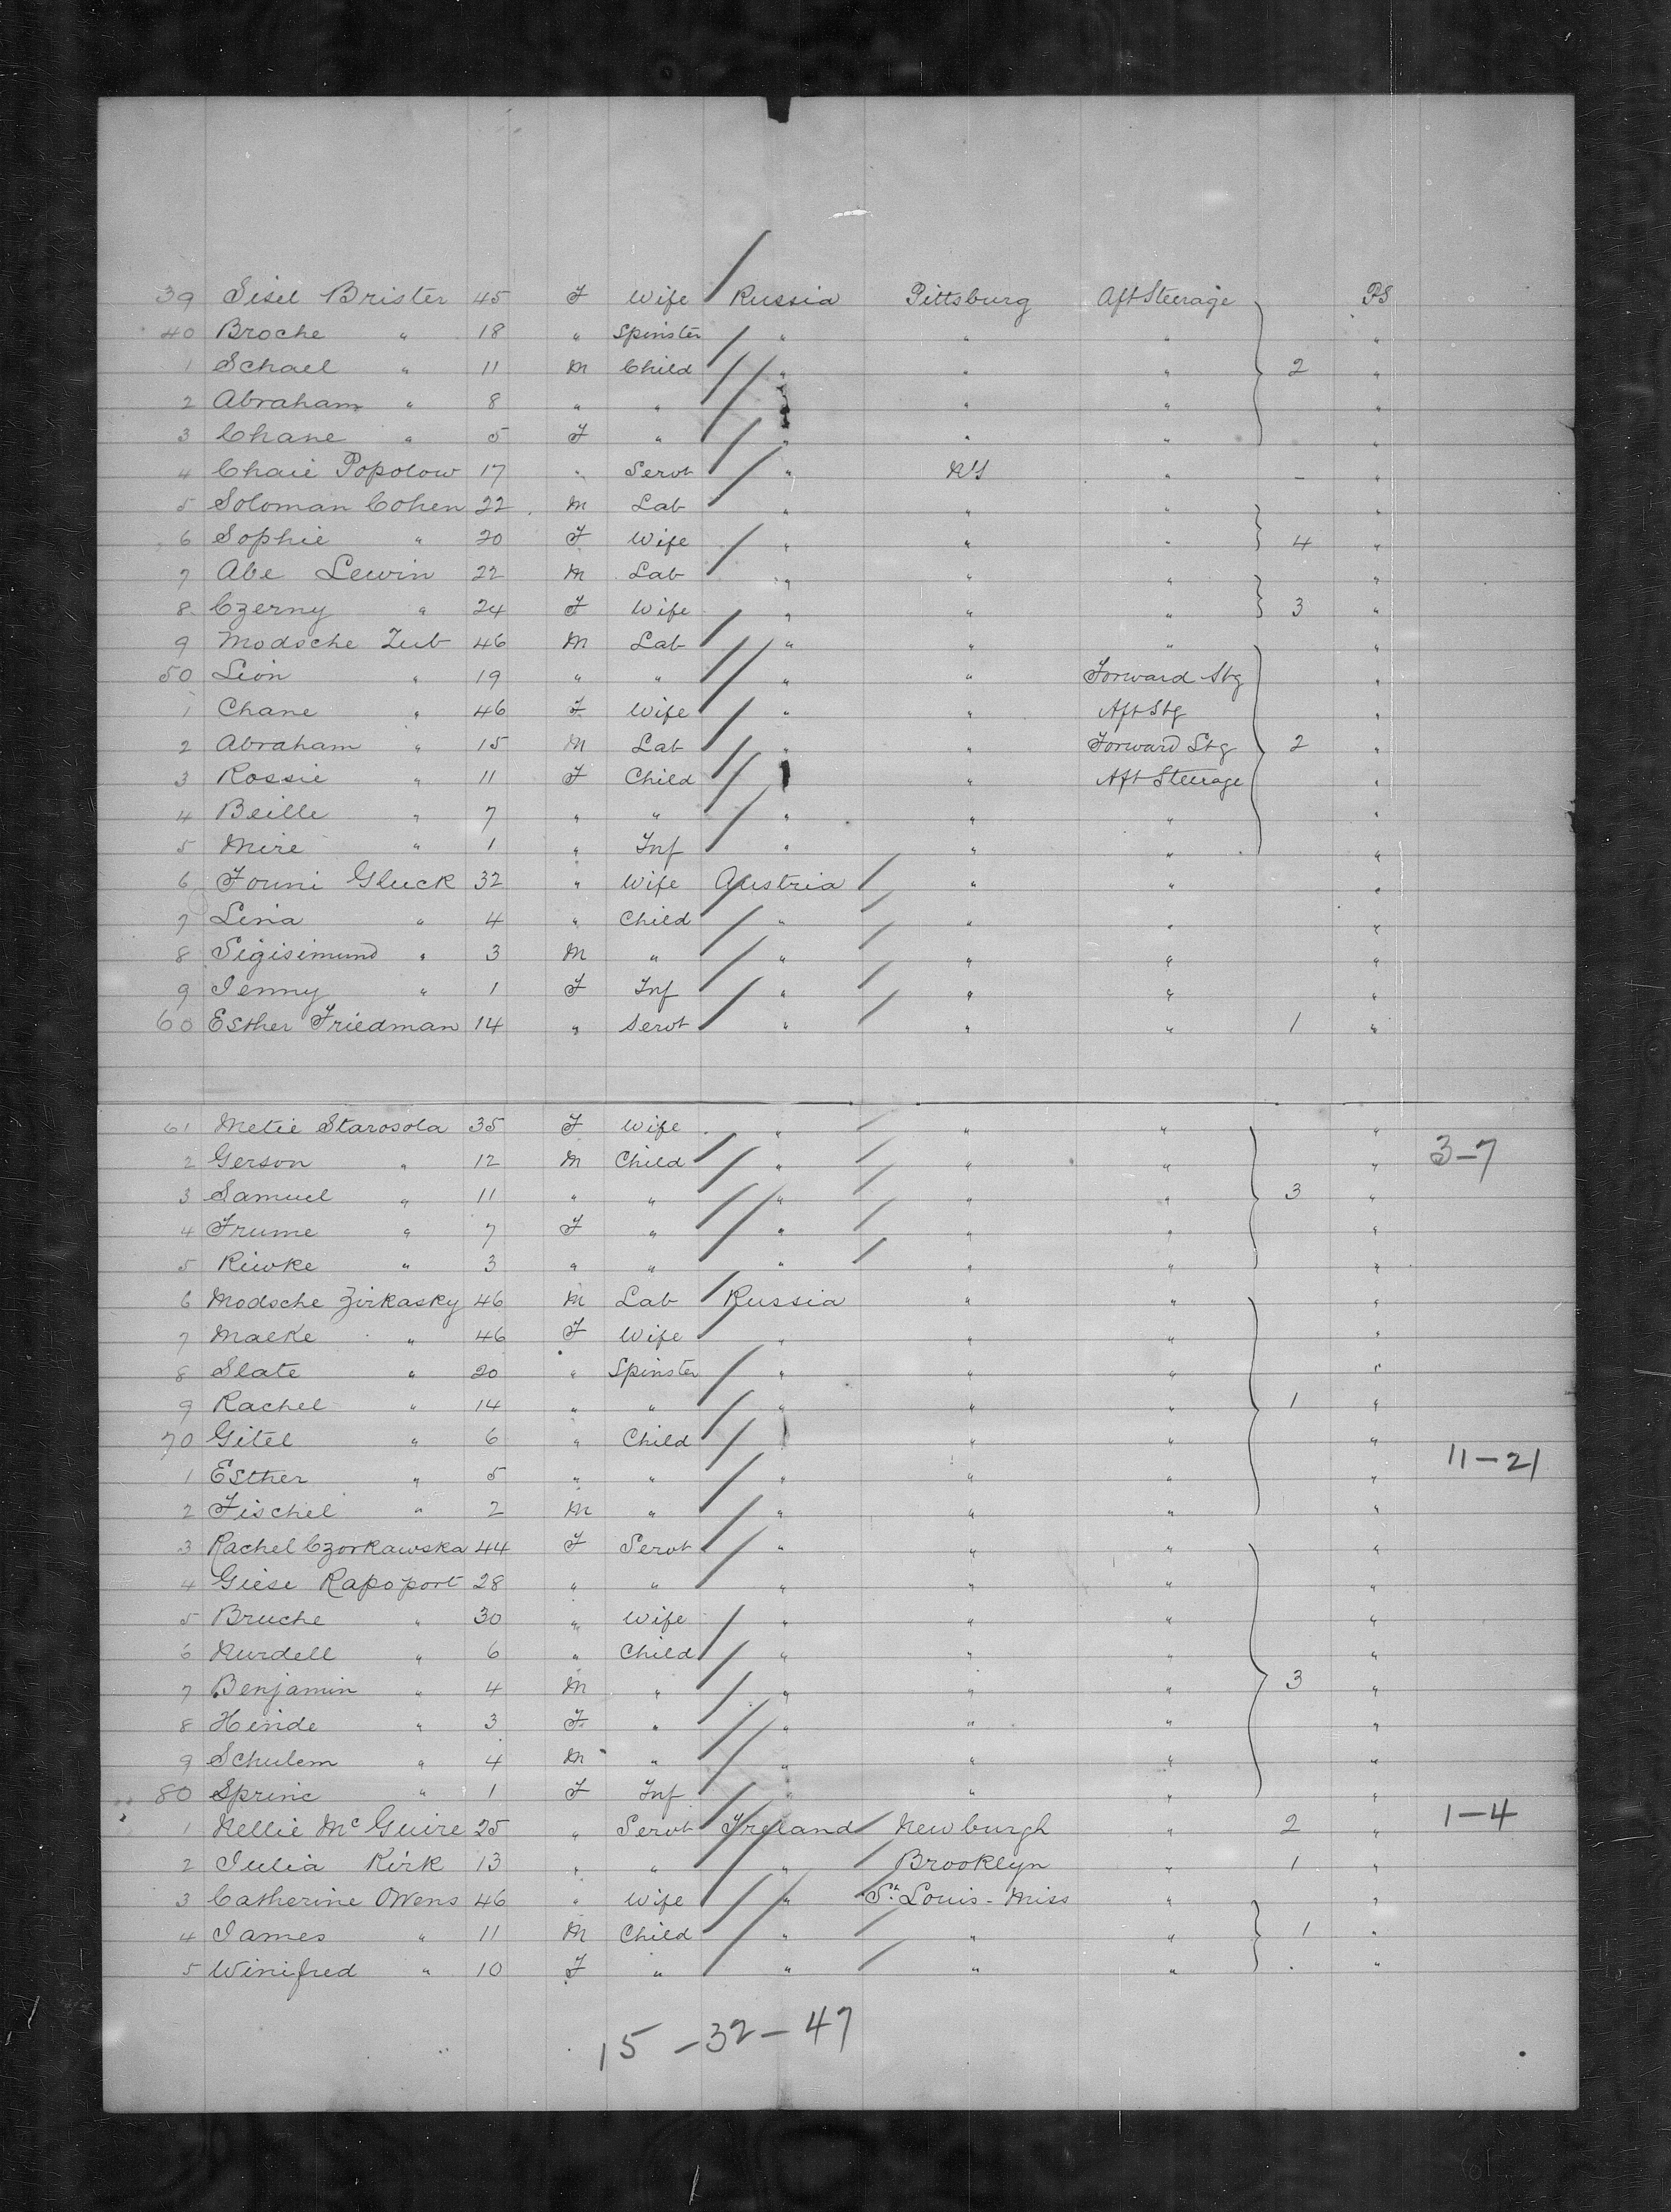 39 Sisel Brister 45 F Wife Russia Pittsburg Aft Steerage PS
40 Broche " 18 " Spinster " " " "
1 Schael " 11 M Child " " " 2 "
2 Abraham " 8 " " " " " "
3 Chane " 5 F " " " " "
4 Chaie Popolow 17 " Servt " NY " - "
5 Soloman Cohen 22 M Lab " " " "
6 Sophie " 20 F Wife " " " 4 "
7 Abe Lewin 22 M Lab " " " "
8 Czerny " 24 F Wife " " " 3 "
9 Modsche Zub 46 M Lab " " " "
50 Lion " 19 " " " " Forward Stg "
1 Chane " 46 F Wife " " Aft Stg "
2 Abraham " 15 M Lab " " Forward Stg 2 "
3 Rossie " 11 F Child " " Aft Steerage "
4 Beille " 7 " " " " " "
5 Mire " 1 " Inf " " " "
6 Founi Gluck 32 " Wife Austria " " "
7 Lina " 4 " Child " " " "
8 Sigisimund " 3 M " " " " "
9 Jenny " 1 F Inf " " " "
60 Esther Friedman 14 " Servt " " " 1 "
61 Metie Starosola 35 F Wife " " " "
2 Gerson " 12 M Child " " " " 3-7
3 Samuel " 11 " " " " " 3 "
4 Frume " 7 F " " " " "
5 Riwke " 3 " " " " " "
6 Modsche Zirkasky 46 M Lab Russia " " "
7 Malke " 46 F Wife " " " "
8 Slate " 20 " Spinster " " " "
9 Rachel " 14 " " " " " 1 "
70 Gitel " 6 " Child " " " "
1 Esther " 5 " " " " " " 11-21
2 Fischel " 2 M " " " " "
3 Rachel Czorkawska 44 F Servt " " " "
4 Giese Rapoport 28 " " " " " "
5 Bruche " 30 " Wife " " " "
6 Nurdell " 6 " Child " " " "
7 Benjamin " 4 M " " " " 3 "
8 Hinde " 3 F " " " " "
9 Schulem " 4 M " " " " "
80 Sprinc " 1 F Inf " " " "
1 Nellie McGuire 25 " Servt Ireland Newburgh " 2 " 1-4
2 Julia Kirk 13 " " " Brooklyn " 1 "
3 Catherine Owens 46 " Wife " St Louis - Miss " "
4 James " 11 M Child " " " 1 "
5 Winifred " 10 F " " " " "
15-32-47